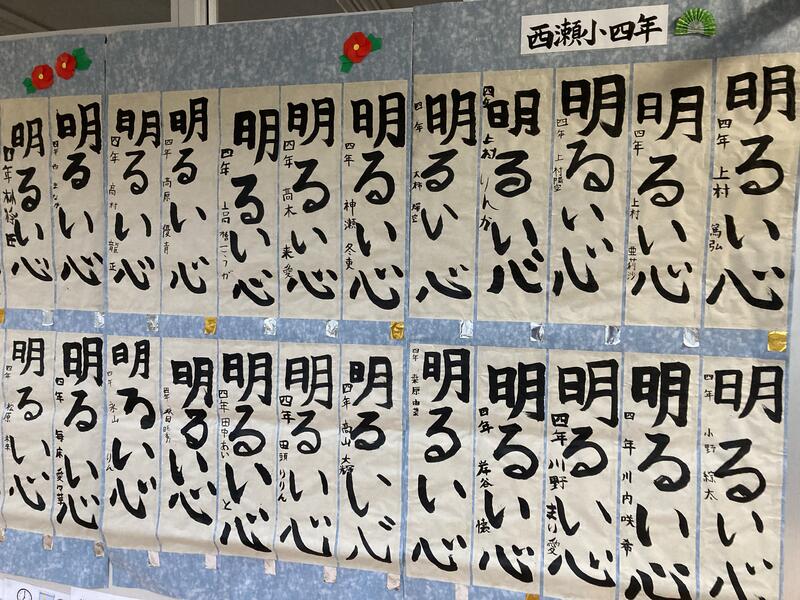 西瀬小四年
明るい心
四年 上村 篤弘
明るい心
四年 上村 亜莉沙
明るい心
四年 上村
明るい心
四年 上村 りんか
明るい心
四年
明るい心
四年 神瀬 冬吏
明るい心
四年 高木 来愛
明るい心
四年
明るい心
四年 高原 優青
明るい心
四年 高村 龍正
明るい心
明るい心
四年
明るい心
四年 小野 綜太
明るい心
四年 川内 咲希
明るい心
四年 川野 まり愛
明るい心
四年
明るい心
四年
明るい心
四年 高山 大輝
明るい心
四年 田頭 りりん
明るい心
四年 田中 あいと
明るい心
明るい心
四年 氷山 りん
明るい心
四年
明るい心
四年 松原